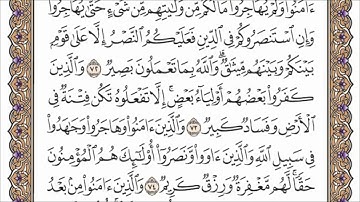 ءَامَنُوا۟ وَلَمْ يُهَاجِرُوا۟ مَا لَكُم مِّن وَلَٰيَتِهِم مِّن شَىْءٍ حَتَّىٰ يُهَاجِرُوا۟
وَإِنِ ٱسْتَنصَرُوكُمْ فِى ٱلدِّينِ فَعَلَيْكُمُ ٱلنَّصْرُ إِلَّا عَلَىٰ قَوْمٍۭ
بَيْنَكُمْ وَبَيْنَهُم مِّيثَٰقٌ ۗ وَٱللَّهُ بِمَا تَعْمَلُونَ بَصِيرٌ ٧٢ وَٱلَّذِينَ
كَفَرُوا۟ بَعْضُهُمْ أَوْلِيَآءُ بَعْضٍ ۚ إِلَّا تَفْعَلُوهُ تَكُن فِتْنَةٌ فِى
ٱلْأَرْضِ وَفَسَادٌ كَبِيرٌ ٧٣ وَٱلَّذِينَ ءَامَنُوا۟ وَهَاجَرُوا۟ وَجَٰهَدُوا۟
فِى سَبِيلِ ٱللَّهِ وَٱلَّذِينَ ءَاوَوا۟ وَّنَصَرُوٓا۟ أُو۟لَٰٓئِكَ هُمُ ٱلْمُؤْمِنُونَ
حَقًّا ۚ لَّهُم مَّغْفِرَةٌ وَرِزْقٌ كَرِيمٌ ٧٤ وَٱلَّذِينَ ءَامَنُوا۟ مِنۢ بَعْدُ